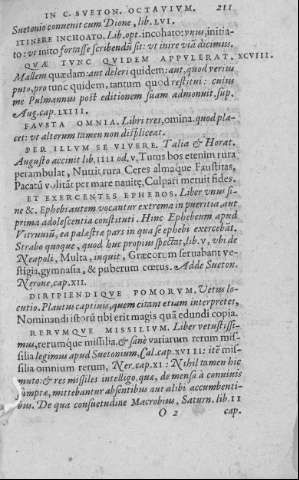 IN C. SVETON. OCTAVIVM. 211
Suetonio conuenit cum Dione, lib. LVI.
ITINERE INCHOATO. Lib. opt. incohato: vnus, initia-
to: vt mito fortasse scribendū sit: vt inire viā dicimus.
QVÆ TVNC QVIDEM APPVLERAT. XCVIII.
Mallem quædam: aut deleri quidem: aut, quod verius
puto, pro tunc quidem, tantum quod restitui: cuius
me Pulmannus post editionem suam admonuit. sup.
Aug. cap. XCIII.
FAVSTA OMNIA. Libri tres, omina. quod pla-
cet: vt alterum tamen non displiceat.
PER ILLVM SE VIVERE. Talia & Horat.
Augusto accinit lib. IIII od. V, Tutus bos etenim rura
perambulat, Nutrit rura Ceres almaque Faustitas,
Pacatū volitāt per mare nauitæ, Culpari metuit fides.
ET EXERCENTES EPHEBOS. Liber vnus si-
ne &. Ephebi autem vocantur extrema in pueritia aut
prima adolescentia constituti. Hinc Ephebeum apud
Vitruuiū, ea palæstræ pars in qua se ephebi exercebāt.
Strabo quoque, quod huc propius spectat, lib. v, vbi de
Neapoli, Multa, inquit, Græcorum seruabant ve-
stigia, gymnasia, & puberum cœtus. Adde Sueton.
Nerone, cap. XII.
DIRIPIENDIQVE POMORVM. Vetus lo-
cutio. Plautum captiuis, quem citant etiam interpretes,
Nominandi istorū tibi erit magis quā edundi copia.
RERVMQVE MISSILIVM. Liber vetustissi-
mus, rerumque missilia. & sanè variarum rerum mis-
silia legimus apud Suetonium, Cal. cap. XVIII: itē mis-
silia omnium rerum, Ner. cap. XI: Nihil tamen hic
muto: & res missiles intelligo, quæ, de mensa à conuiuis
sumptæ, mittebantur absentibus aut alibi accumbenti-
bus. De qua consuetudine Macrobius, Saturn. lib. II
O 2 cap.